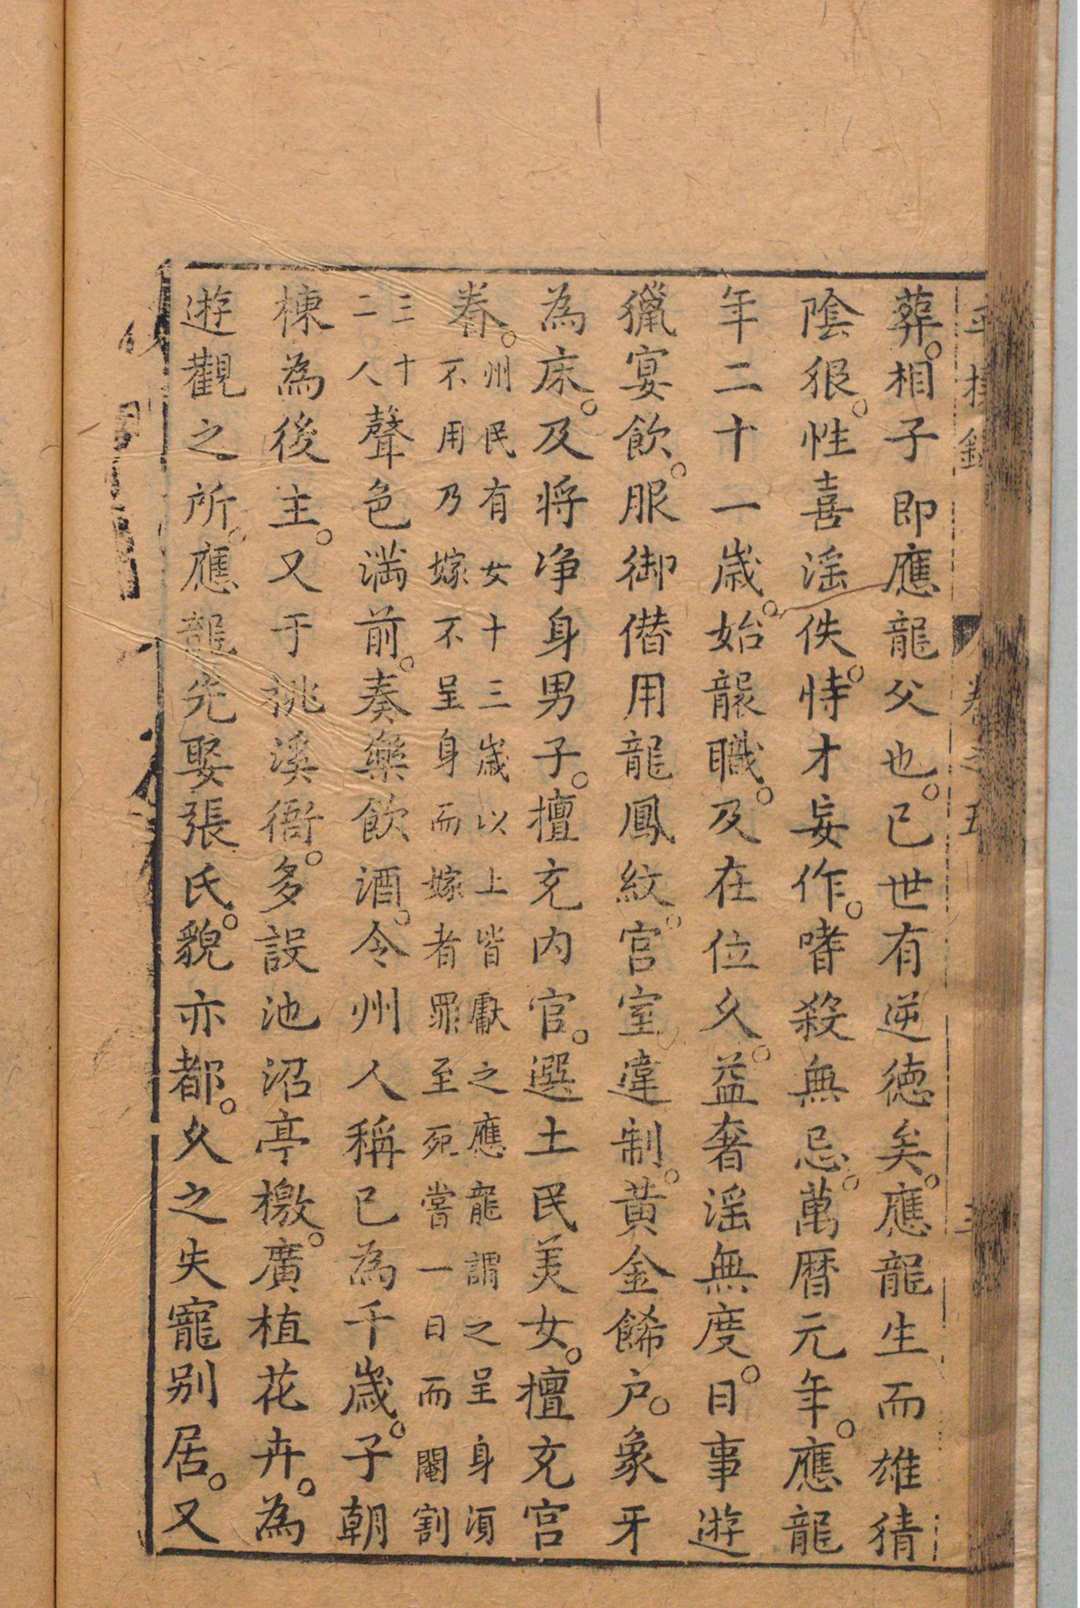 葬。相子即應龍父也。已世有逆德矣。應龍生而雄猜
陰狠。性喜滛佚。恃才妄作。嗜殺無忌。萬曆元年。應龍
年二十一歲。始襲職。及在位久。益奢滛無度。日事遊
獵宴飲。服御僣用龍鳳紋。宫室違制。黄金餙户。象牙
為床。及將净身男子。擅充内官。選土民美女。擅充宫
眷。州民有女十三歲以上皆獻之應龍謂之呈身湏
不用乃嫁不呈身而嫁者罪至死嘗一日而閹割
三十
二人
聲色满前。奏樂飲酒。令州人稱已為千歲。子朝
棟為後主。又于桃溪衙。多設池沼亭檄。廣植花卉。為
遊觀之所。應龍先娶張氏。貌亦都。久之失寵别居。又
平播錄
卷之五